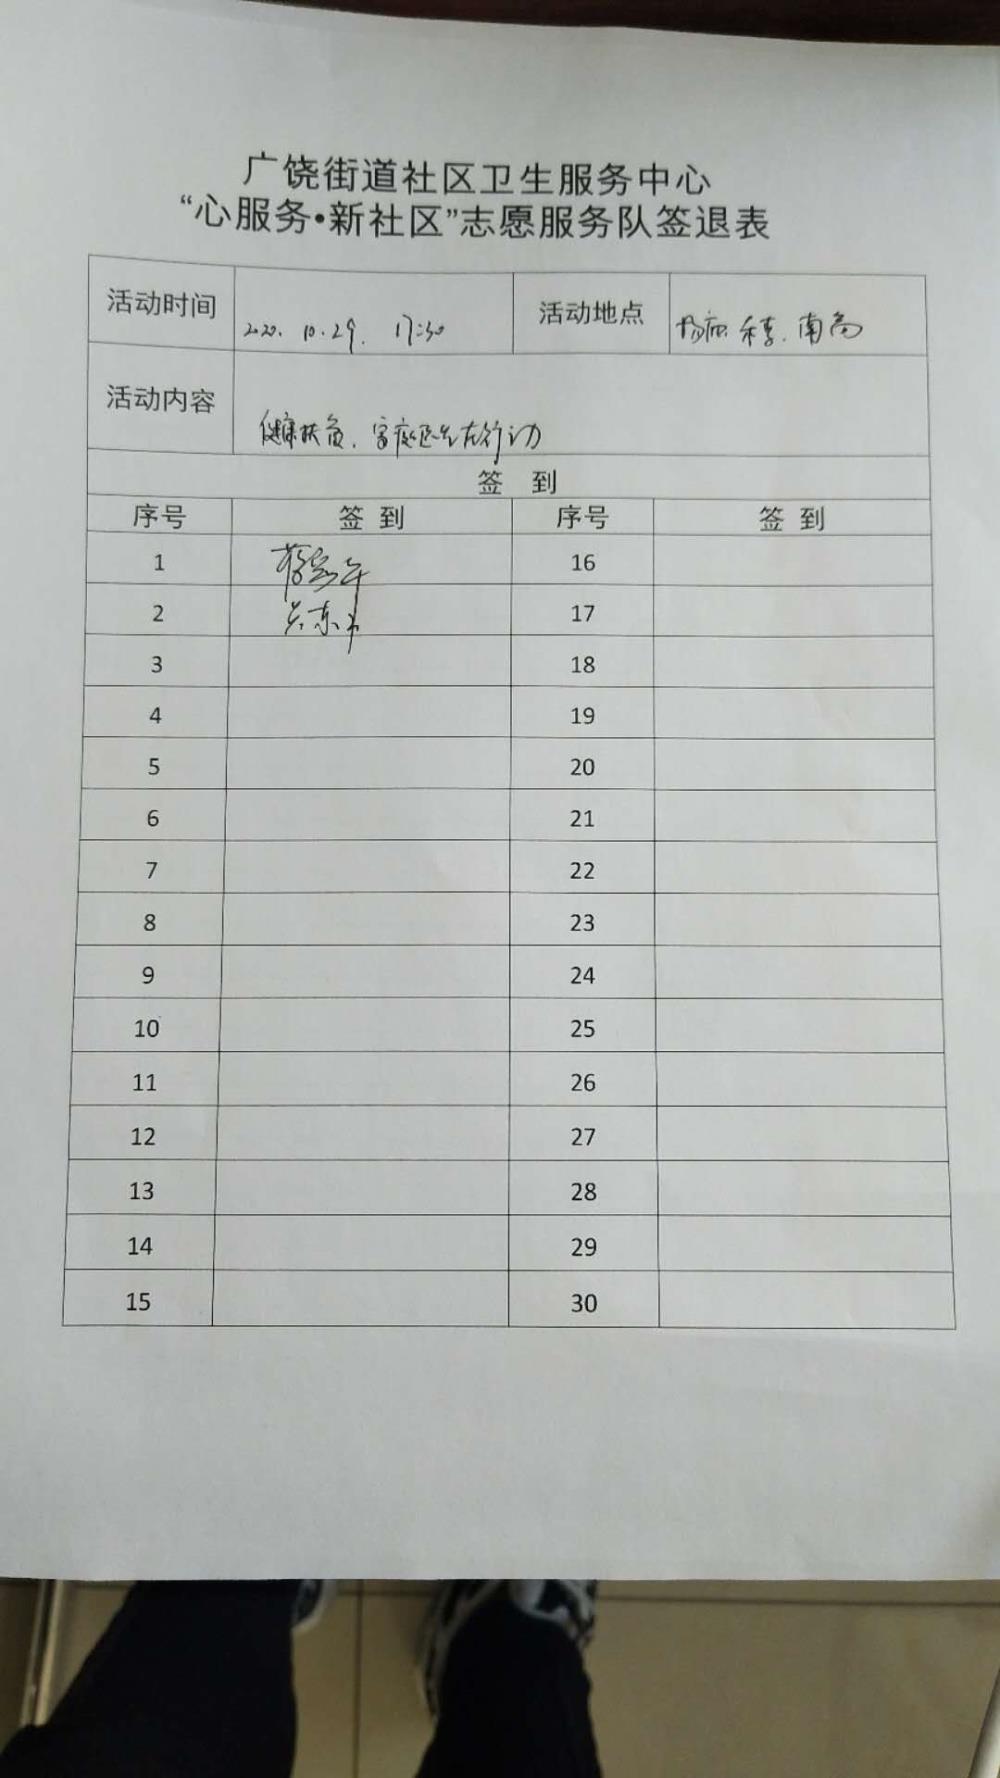 广饶街道社区卫生服务中心
“心服务•新社区”志愿服务队签退表
活动时间 2020.10.29. 17:30 活动地点 南
活动内容 健康扶贫、家庭医生在行动
签 到
序号 签到 序号 签到
1 16
2 17
3 18
4 19
5 20
6 21
7 22
8 23
9 24
10 25
11 26
12 27
13 28
14 29
15 30